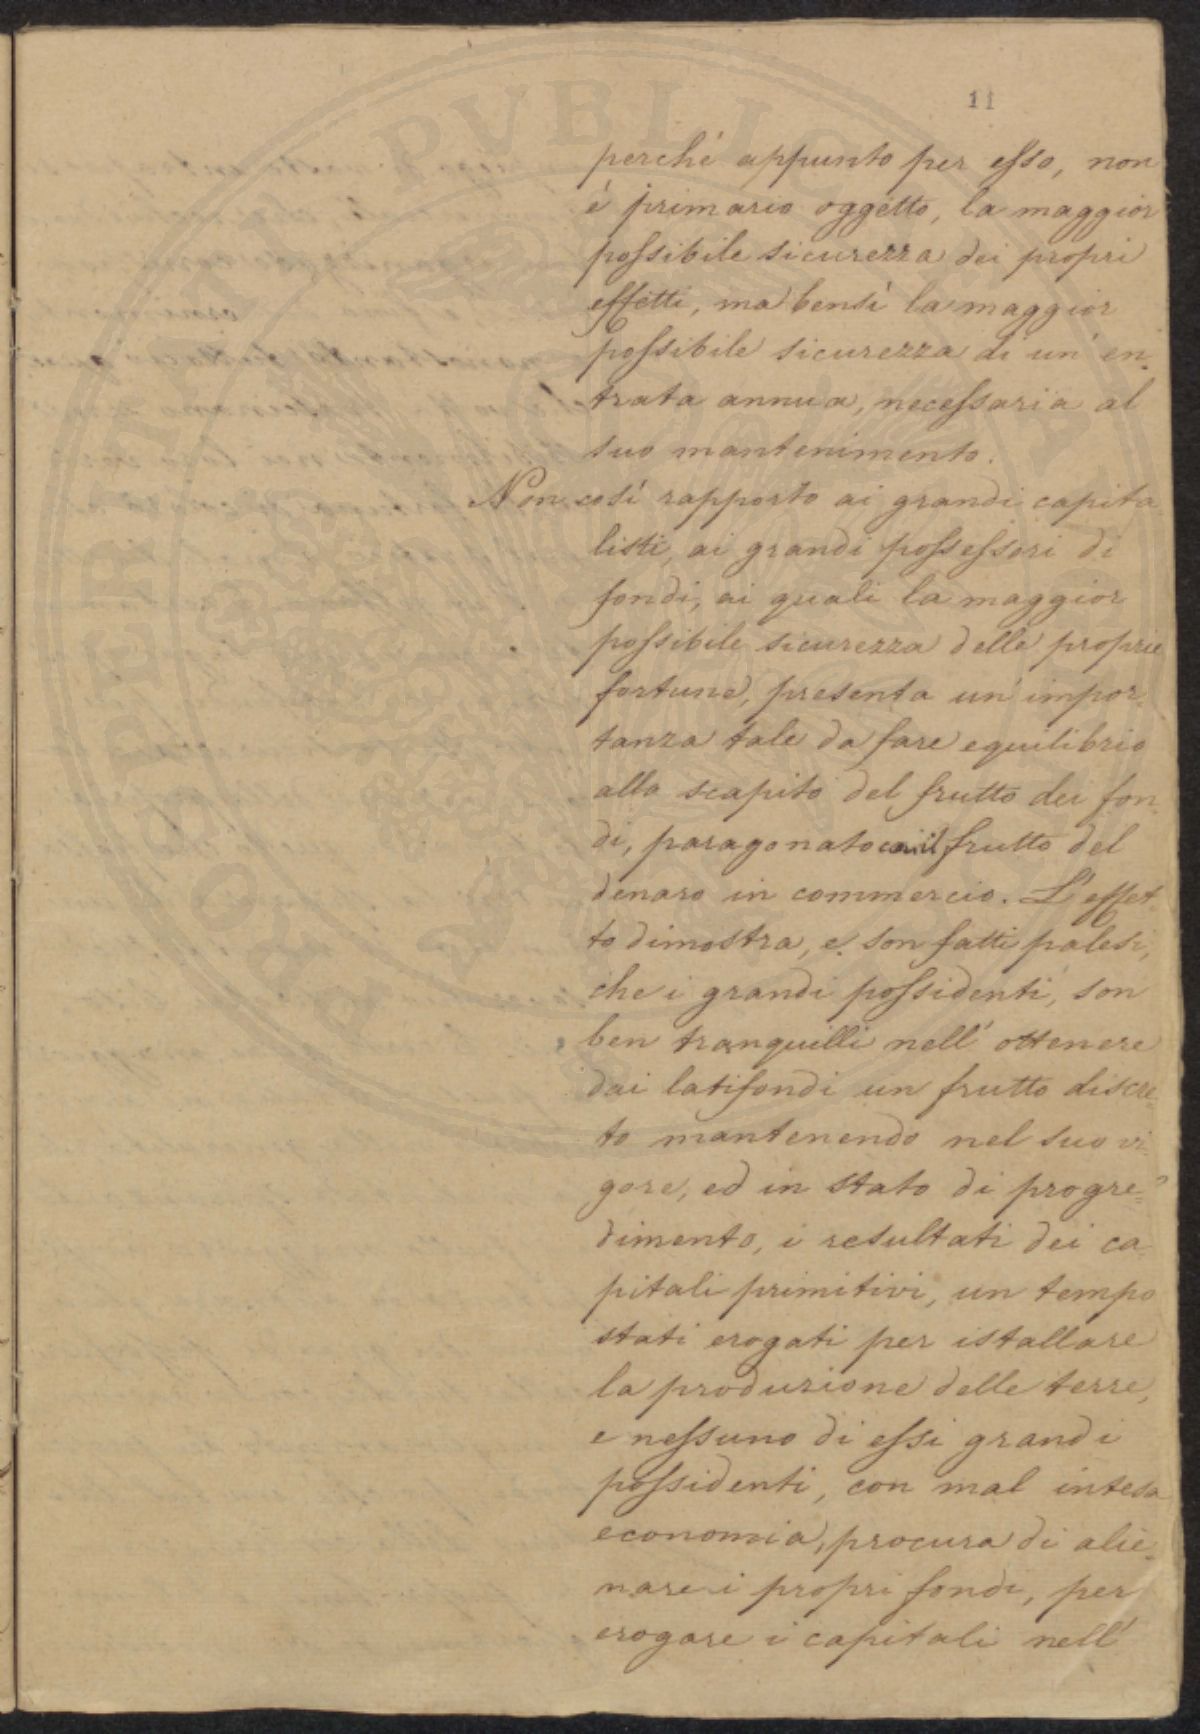 11
perchè appunto per esso, non
è primario oggetto, la maggior
possibile sicurezza dei propri
effetti, ma bensì la maggior
possibile sicurezza di un' en-
trata annua, necessaria al
suo mantenimento.
Non così rapporto ai grandi capita
listi, ai grandi possessori di
fondi, ai quali la maggior
possibile sicurezza delle proprie
fortune, presenta un' impor-
tanza tale da fare equilibrio
allo scapito del frutto dei fon-
di, paragonato con il frutto del
denaro in commercio. L'effet-
to dimostra, e son fatti palesi,
che i grandi possidenti, son
ben tranquilli nell' ottenere
dai latifondi un frutto discre=
to mantenendo nel suo vi=
gore, ed in stato di progre=
dimento, i resultati dei ca
pitali primitivi, un tempo
stati erogati per istallare
la produzione delle terre,
e nessuno di essi grandi
possidenti, con mal intesa
economia, procura di alie-
nare i propri fondi, per
erogare i capitali nell'